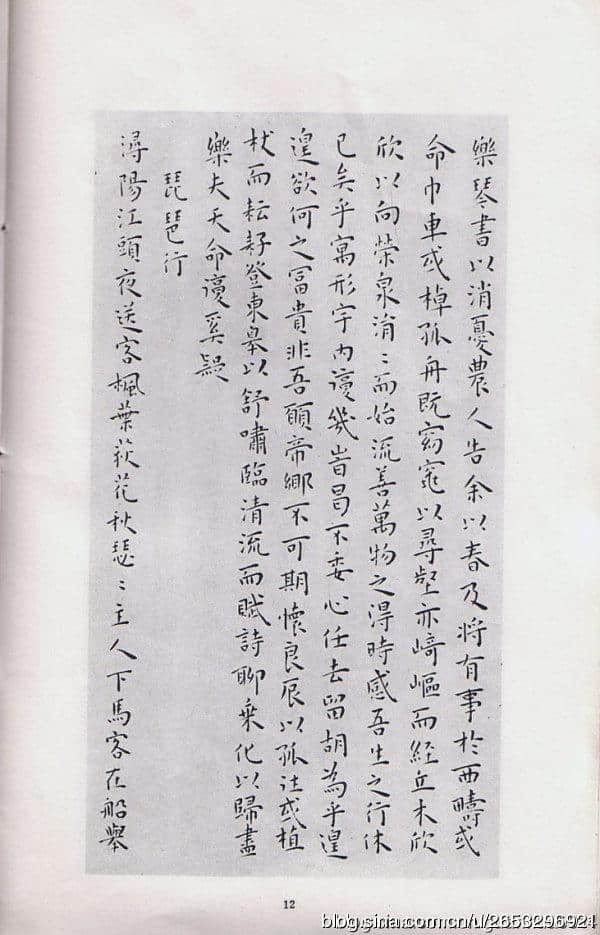 樂琴書以消憂農人告余以春及將有事於西疇或
命巾車或棹孤舟既窈窕以尋壑亦崎嶇而經丘木欣
欣以向榮泉涓〻而始流善萬物之得時感吾生之行休
已矣乎寓形宇內復幾旹曷不委心任去留胡為乎遑
遑欲何之富貴非吾願帝鄉不可期懷良辰以孤往或植
杖而耘耔登東皋以舒嘯臨清流而賦詩聊乘化以歸盡
樂夫天命復奚疑
琵琶行
潯陽江頭夜送客楓葉荻花秋瑟〻主人下馬客在船舉
12
blog.sina.com.cn/u/2653296921